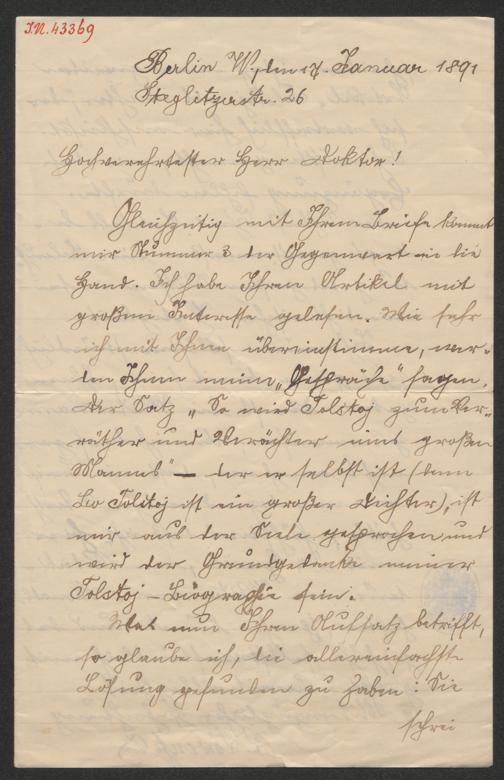 I.N. 43369
Berlin W., den 17. Januar 1891
Steglitzerstr. 26
Hochverehrtester Herr Doktor!
Gleichzeitig mit Ihrem Briefe kommt
mir Nummer 3 der Gegenwart in die
Hand. Ich habe Ihren Artikel mit
großem Interesse gelesen. Wie sehr
ich mit Ihnen übereinstimme, wer-
den Ihnen meine „Gespräche" sagen.
Der Satz „So wird Tolstoj zum Ver-
räther und Verächter eines großen
Mannes" — der er selbst ist (denn
Leo Tolstoj ist ein großer Dichter), ist
mir aus der Seele gesprochen und
wird der Grundgedanke meiner
Tolstoj-Biographie sein.
Was nun Ihren Aufsatz betrifft,
so glaube ich, die allereinfachste
Lösung gefunden zu haben: Sie
schrei